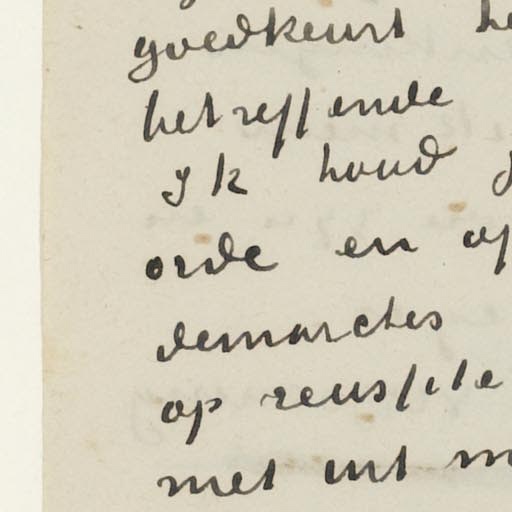 goedkeurt he
betreffende
Ik houd
orde en op
demarches
op reussite
met uit m